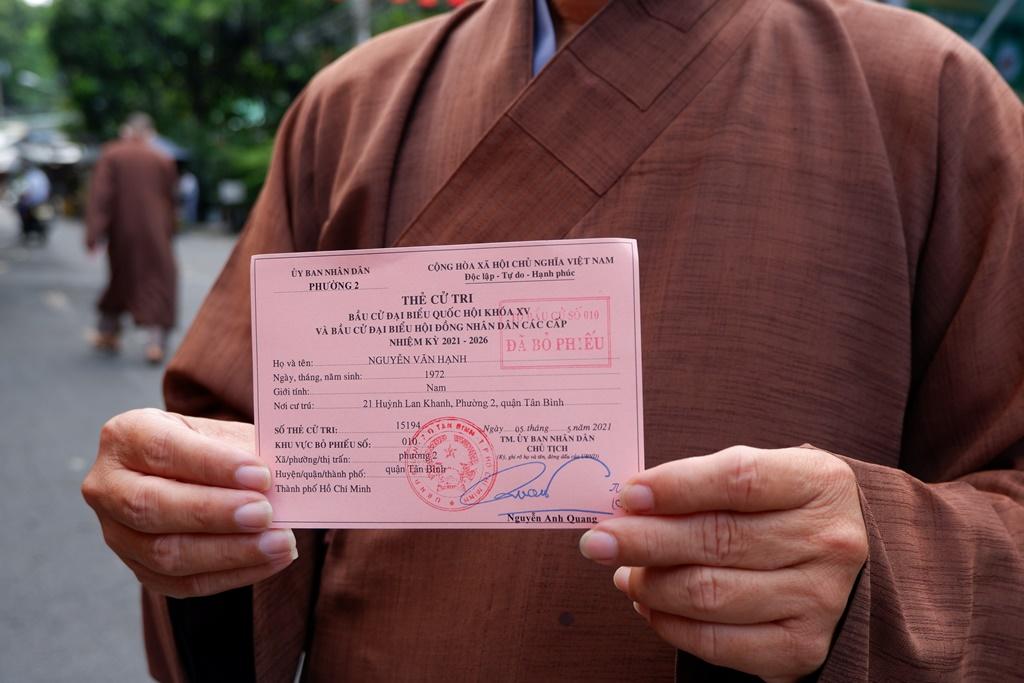 ỦY BAN NHÂN DÂN
PHƯỜNG 2
CỘNG HÒA XÃ HỘI CHỦ NGHĨA VIỆT NAM
Độc lập - Tự do - Hạnh phúc
THẺ CỬ TRI
BẦU CỬ ĐẠI BIỂU QUỐC HỘI KHÓA XV
VÀ BẦU CỬ ĐẠI BIỂU HỘI ĐỒNG NHÂN DÂN CÁC CẤP
NHIỆM KỲ 2021 - 2026
BẦU CỬ SỐ 010
ĐÃ BỎ PHIẾU
Họ và tên: NGUYỄN VĂN HẠNH
Ngày, tháng, năm sinh: 1972
Giới tính: Nam
Nơi cư trú: 21 Huỳnh Lan Khanh, Phường 2, quận Tân Bình
SỐ THẺ CỬ TRI: 15194
KHU VỰC BỎ PHIẾU SỐ: 010
Xã/phường/thị trấn: phường 2
Huyện/quận/thành phố: quận Tân Bình
Thành phố Hồ Chí Minh
Ngày 05 tháng 5 năm 2021
TM. ỦY BAN NHÂN DÂN
CHỦ TỊCH
(Ký, ghi rõ họ và tên, đóng dấu của UBND)
Nguyễn Anh Quang